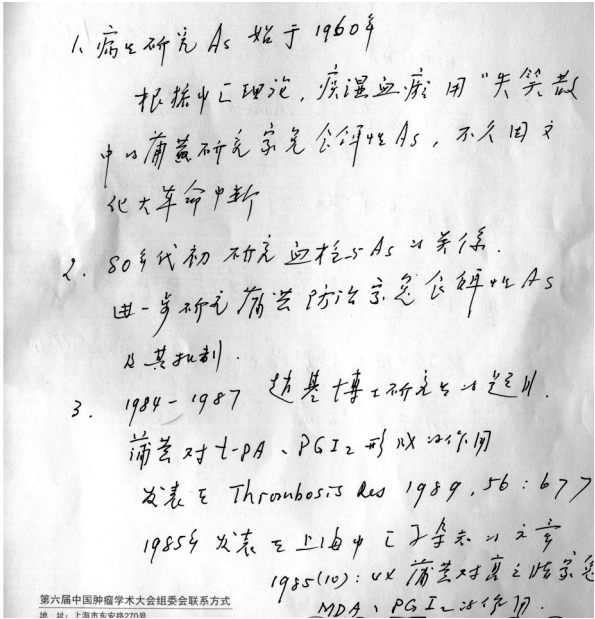 1. 病生研究 As 始于 1960年
根据中医理论,痰湿血瘀 用"失笑散
中的蒲黄研究家兔食饵性As,不久因文
化大革命中断
2. 80年代初 研究血栓与As的关係.
进一步研究蒲黄防治家兔食饵性As
及其机制.
3. 1984-1987 赵基博士研究生的题目.
蒲黄对t-PA、PGI2形成的作用
发表在 Thrombosis Res 1989, 56:677
1985年发表在上海中医杂志的文章
1985(10): 44 蒲黄对高 家兔
MDA、PGI2的作用.
第六届中国肿瘤学术大会组委会联系方式
地 址:上海市东安路270号